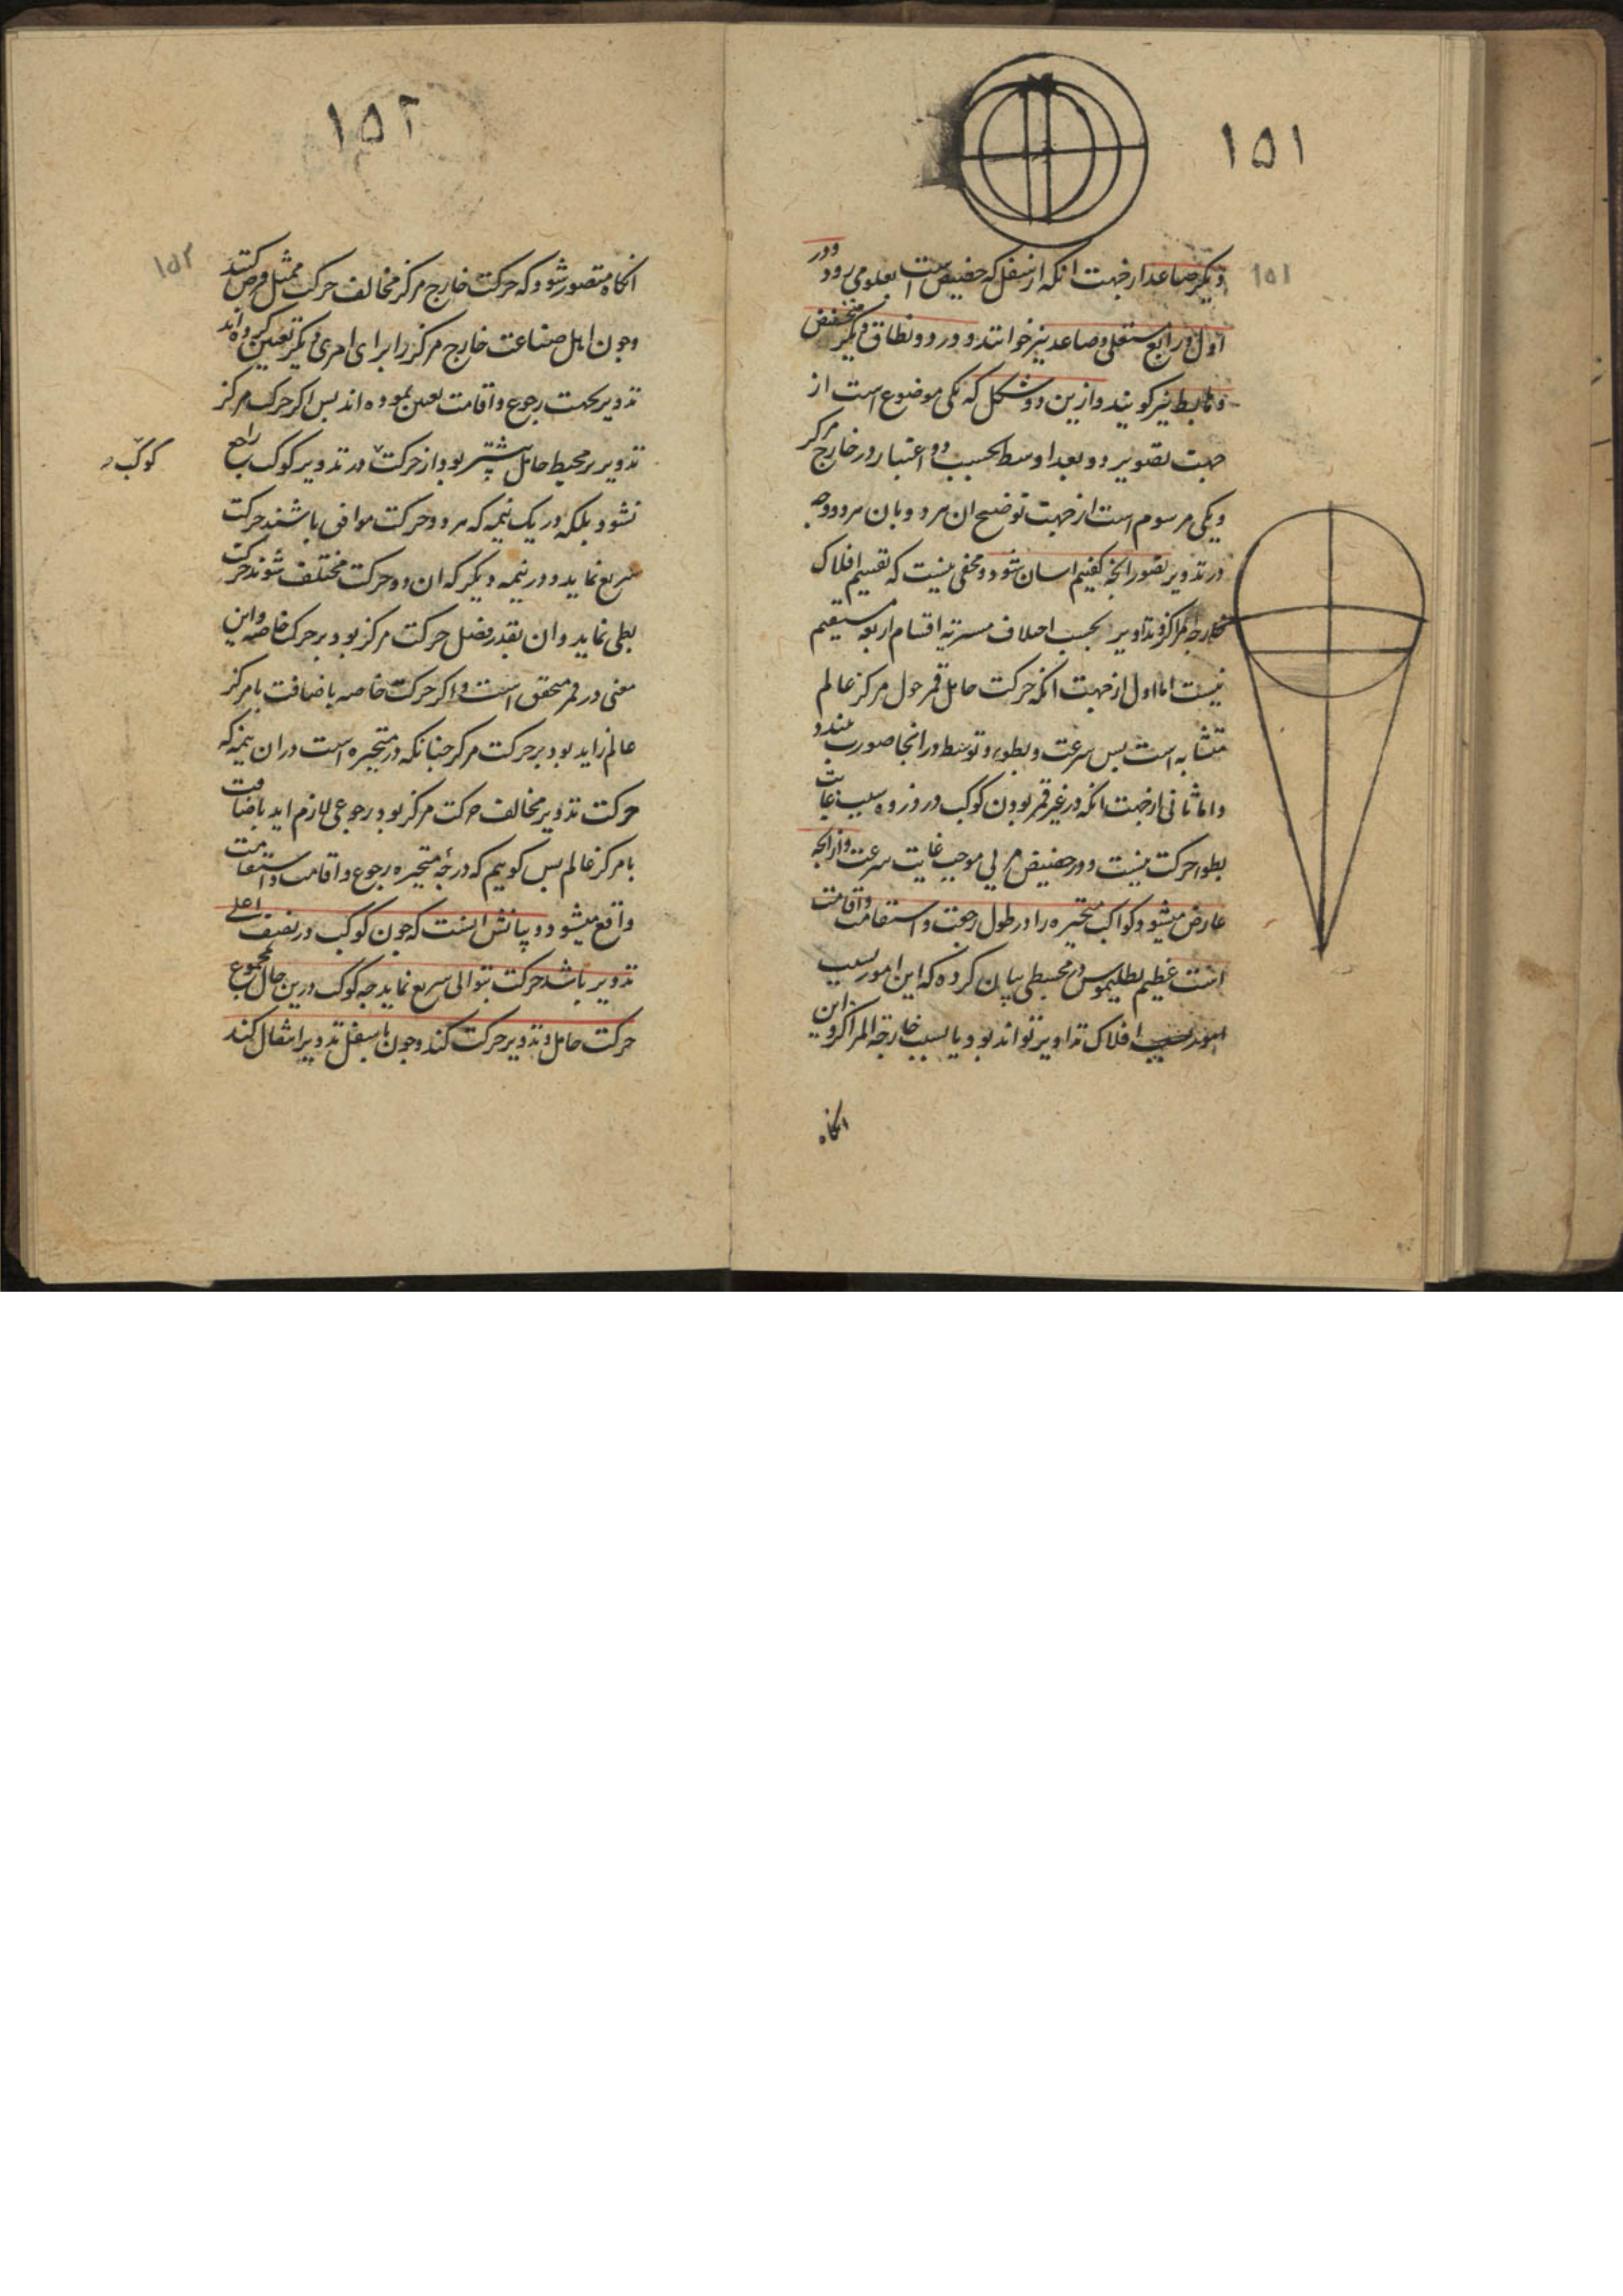 ۱۵۱
۱۵۱
دیکر صاعد از جهت انکه از سفل که حضیض است بعلو می‌رود و در
اول و رابع مستعلی و صاعد نیز خوانند و در دو نطاق دیکر منخفض
و هابط نیز کویند و ازین دو شکل که یکی موضوع است از
جهت تصویر دو بعد اوسط بحسب دو اعتبار در خارج مرکز
و یکی مرسوم است از جهت توضیح ان هر دو بان هر دو وجه
در تدویر تصور انچه کفتیم اسان شود و مخفی نیست که تقسیم افلاک
خارجة المراکز و تداویر بحسب اختلاف مسیر به اقسام اربعه مستقیم
نیست اما اول از جهت انکه حرکت حامل قمر حول مرکز عالم
متشابه است پس سرعت و بطوء و توسط در انجا صورت نبندد
و اما ثانی از جهت انکه در غیر قمر بودن کوکب در ذروه سبب غایت
بطوء حرکت نیست و در حضیض مرئی موجب غایت سرعت و از انچه
عارض میشود کواکب متحیره را در طول رجعت و استقامت و اقامت
است عظیم بطلیموس در مجسطی بیان کرده که این امور بسبب
افلاک تداویر تواند بود یا بسبب خارجة المراکز و این
انکاه
۱۵۲
۱۵۲
انکاه متصور شود که حرکت خارج مرکز مخالف حرکت ممثل فرض کنند
و چون اهل صناعت خارج مرکز را برای امری دیکر تعیین کرده‌اند
تدویر بجهت رجوع و اقامت تعیین نموده اند پس اکر حرکت مرکز
تدویر بر محیط حامل بیشتر بود از حرکت در تدویر کوکب راجع
کوکب
نشود بلکه در یک نیمه که هر دو حرکت موافق باشند حرکت
سریع نماید و در نیمه دیکر که ان دو حرکت مختلف شوند حرکت
بطی نماید و ان بقدر فضل حرکت مرکز بود بر حرکت خاصه و این
معنی در قمر محقق است و اکر حرکت خاصه باضافت با مرکز
عالم زاید بود بر حرکت مرکز چنانکه در متحیره است در ان نیمه که
حرکت تدویر مخالف حرکت مرکز بود رجوعی لازم اید باضافت
با مرکز عالم پس کوییم که در متحیره رجوع و اقامت و استقامت
واقع میشود و بیانش انست که چون کوکب در نصف اعلی
تدویر باشد حرکت بتوالی سریع نماید چه کوکب درین حال بمجموع
حرکت حامل و تدویر حرکت کند و چون باسفل تدویر انتقال کند